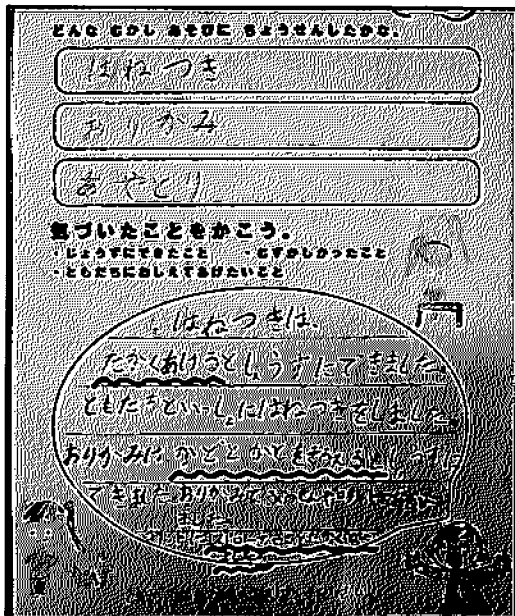 どんな むかし あそびに ちょうせんしたかな。
はねつき
おりがみ
あやとり
気づいたことをかこう。
・じょうずにできたこと ・むずかしかったこと
・ともだちにおしえてあげたいこと
はねつきは、
たかくあげるとじょうずにできました。
ともだちといっしょにはねつきをしました。
おりがみは かどとかどをそろえると
できました おりがみで
ました。